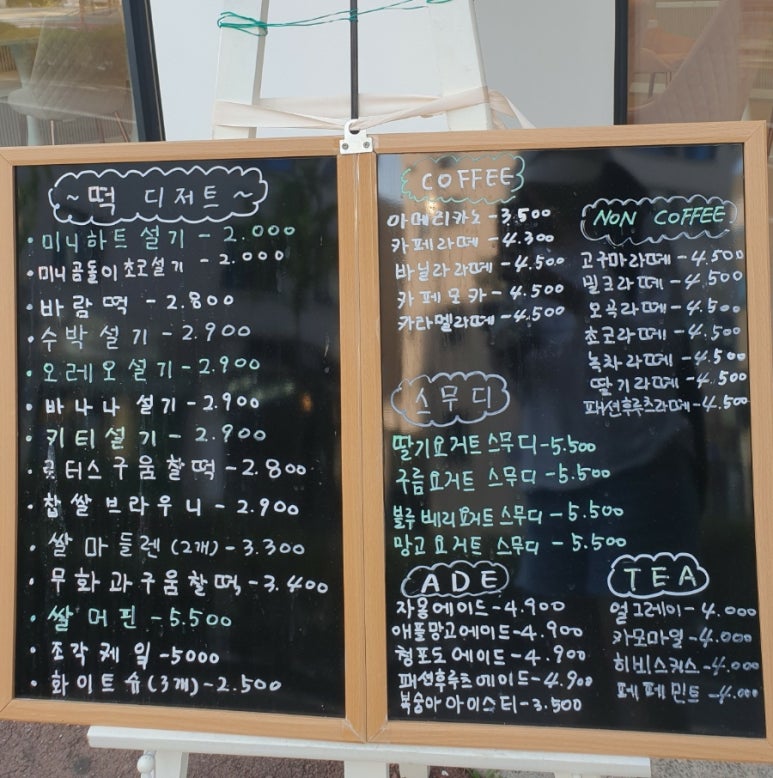 ~ 떡 디저트 ~
· 미니하트 설기 - 2.000
· 미니곰돌이 초코설기 - 2.000
· 바람떡 - 2.800
· 수박설기 - 2.900
· 오레오설기 - 2.900
· 바나나 설기 - 2.900
· 키티설기 - 2.900
· 로터스구움찰떡 - 2.800
· 찹쌀브라우니 - 2.900
· 쌀마들렌 (2개) - 3.300
· 무화과구움찰떡 - 3.400
· 쌀머핀 - 5.500
· 조각케잌 - 5000
· 화이트슈(3개) - 2.500
COFFEE
아메리카노 - 3.500
카페라떼 - 4.300
바닐라라떼 - 4.500
카페모카 - 4.500
카라멜라떼 - 4.500
NON COFFEE
고구마라떼 - 4.500
밀크라떼 - 4.500
오곡라떼 - 4.500
초코라떼 - 4.500
녹차라떼 - 4.500
딸기라떼 - 4.500
패션후루츠라떼 - 4.500
스무디
딸기요거트스무디 - 5.500
구름요거트 스무디 - 5.500
블루베리요거트스무디 - 5.500
망고요거트 스무디 - 5.500
ADE
자몽에이드 - 4.900
애플망고에이드 - 4.900
청포도에이드 - 4.900
패션후루츠에이드 - 4.900
복숭아아이스티 - 3.500
TEA
얼그레이 - 4.000
카모마일 - 4.000
히비스커스 - 4.000
페퍼민트 - 4.000